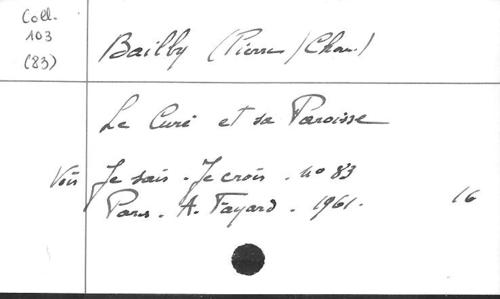 Coll.
103
(83)
Bailby (Pierre / Chan.)
Le Curé et sa Paroisse
Voir Je sais - Je crois - no 83
Paris - A. Fayard - 1961. 16